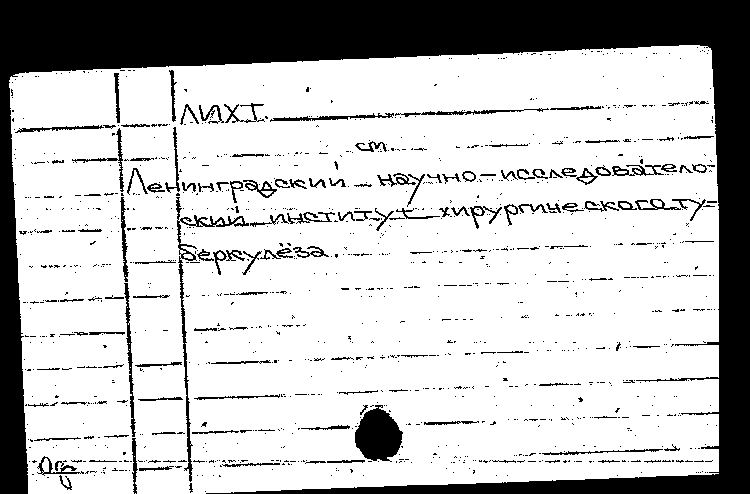 ЛИХТ.
см.
Ленинградский научно-исследователь-
ский институт хирургического ту-
беркулёза.
Org